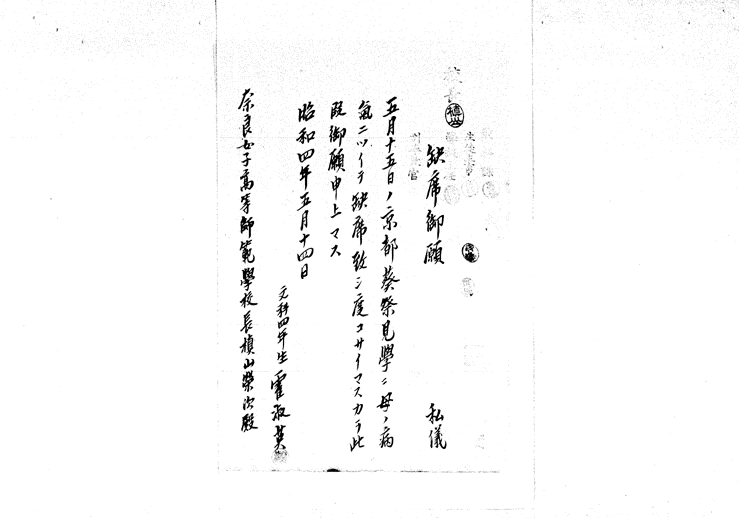 缺席御願
私儀
五月十五日ノ京都葵祭見學ニ母ノ病
氣ニツイテ缺席致シ度コサイマスカラ此
段御願申上マス
昭和四年五月十四日
文科四年生 霍淑英
奈良女子高等師範學校長槇山榮次殿